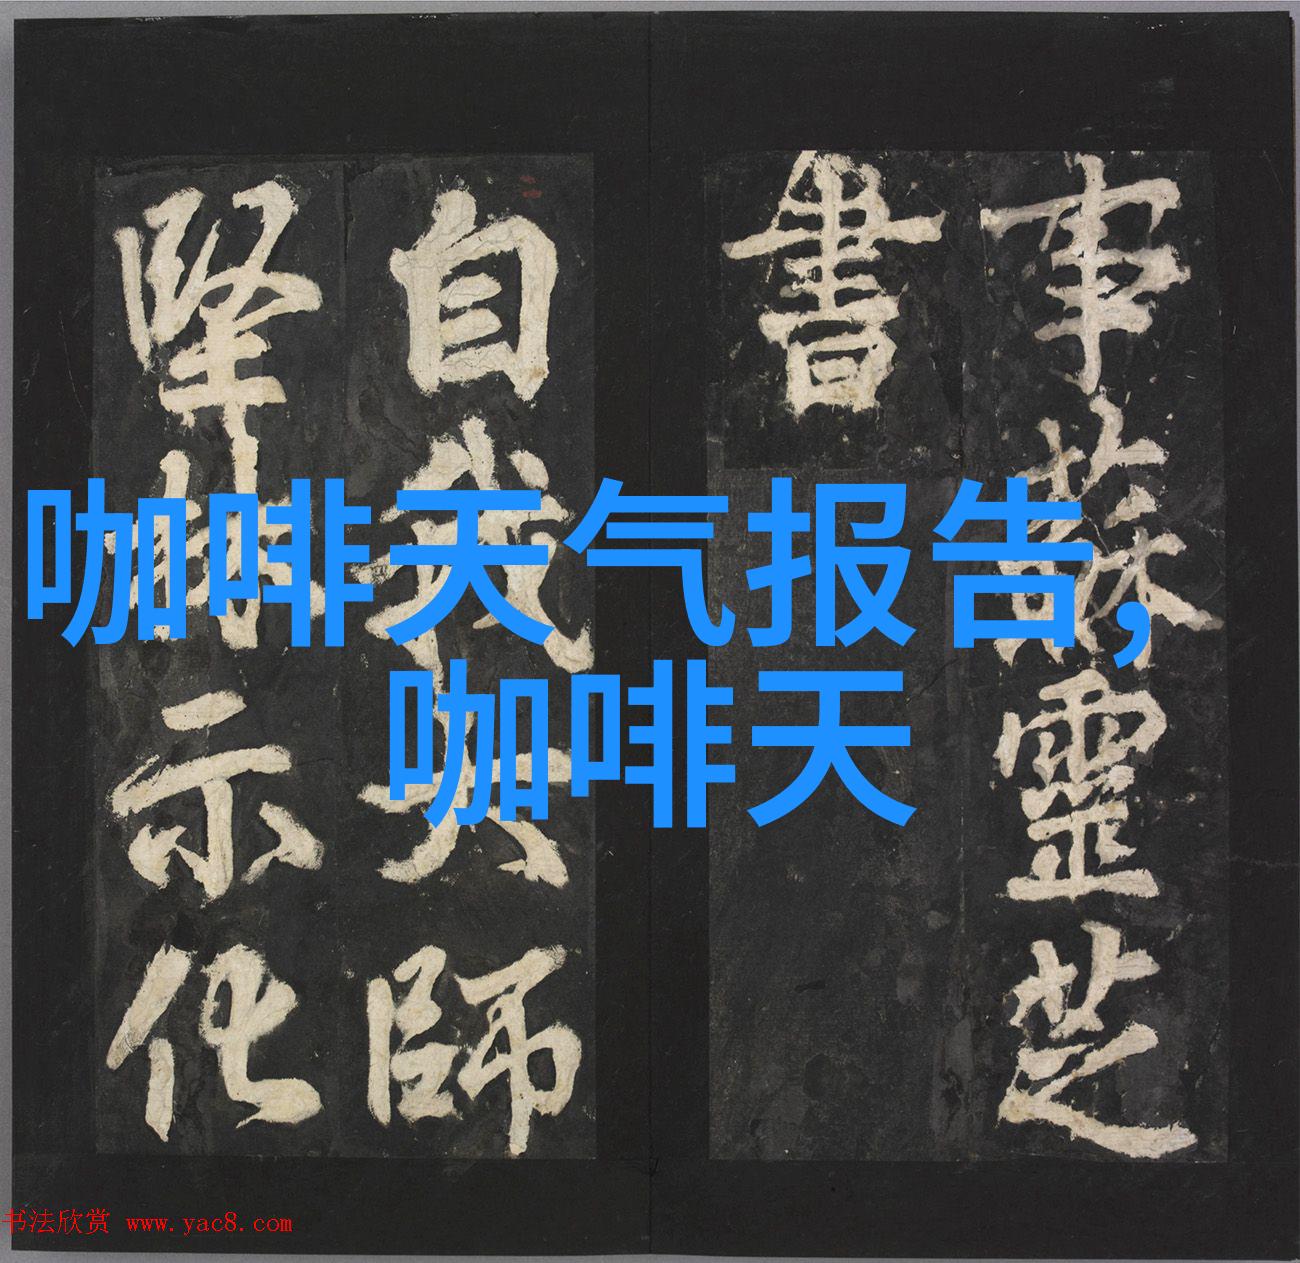 事蘇靈芝
書
自我大師
示化
咖啡天气报告,
咖啡天
书法欣赏 www.yac8.com